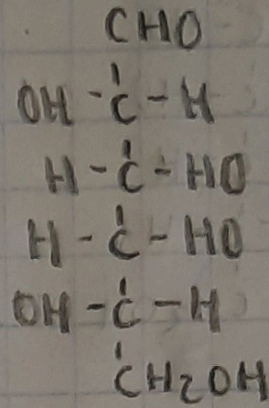 CHO
OH-C-H
H-C-HO
H-C-HO
OH-C-H
CH2OH